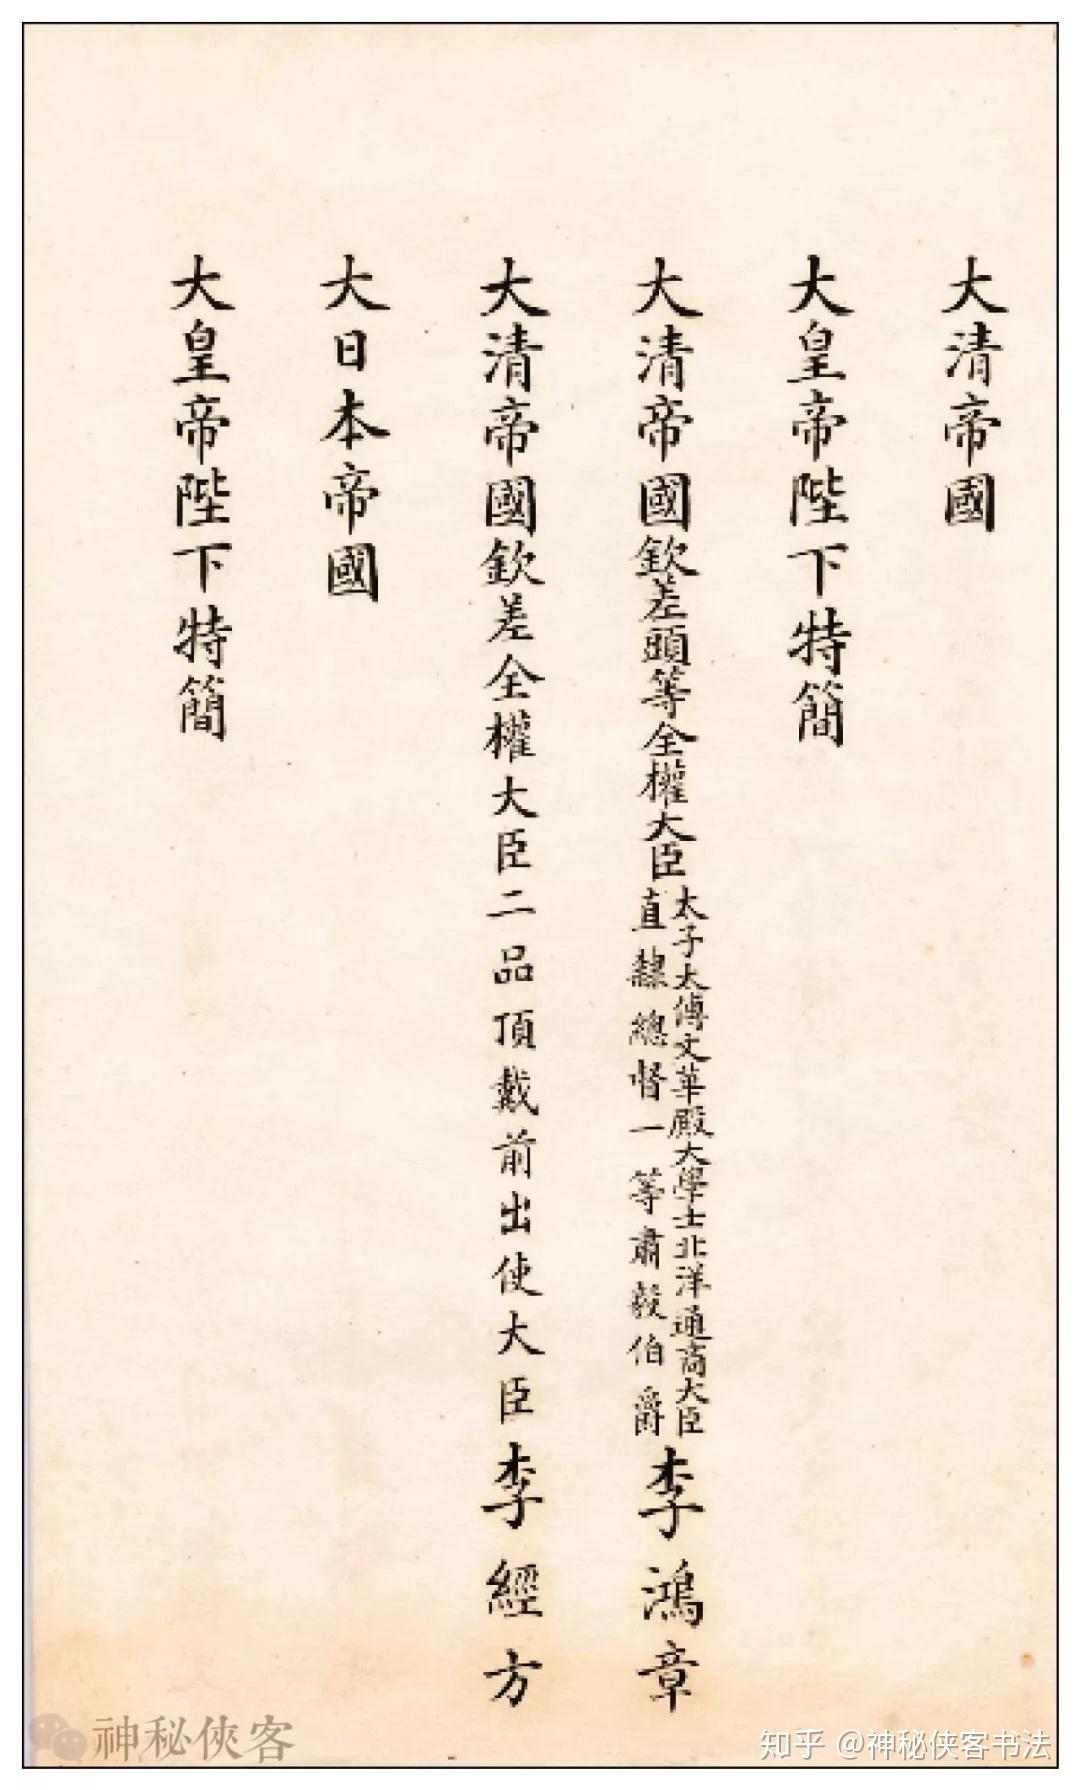 大清帝國
大皇帝陛下特簡
大清帝國欽差頭等全權大臣太子太傅文華殿大學士北洋通商大臣直隸總督一等肅毅伯爵李鴻章
大清帝國欽差全權大臣二品頂戴前出使大臣李經方
大日本帝國
大皇帝陛下特簡
神秘俠客
知乎 @神秘侠客书法